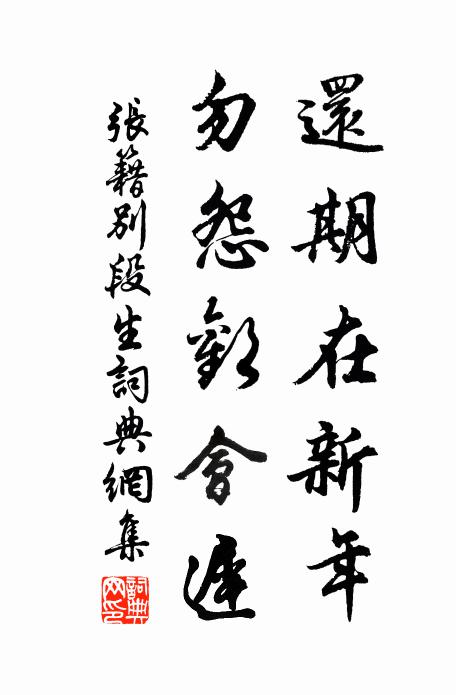 還期在新年
勿怨歡會遲
張籍別段生詞典網集
詞典網印